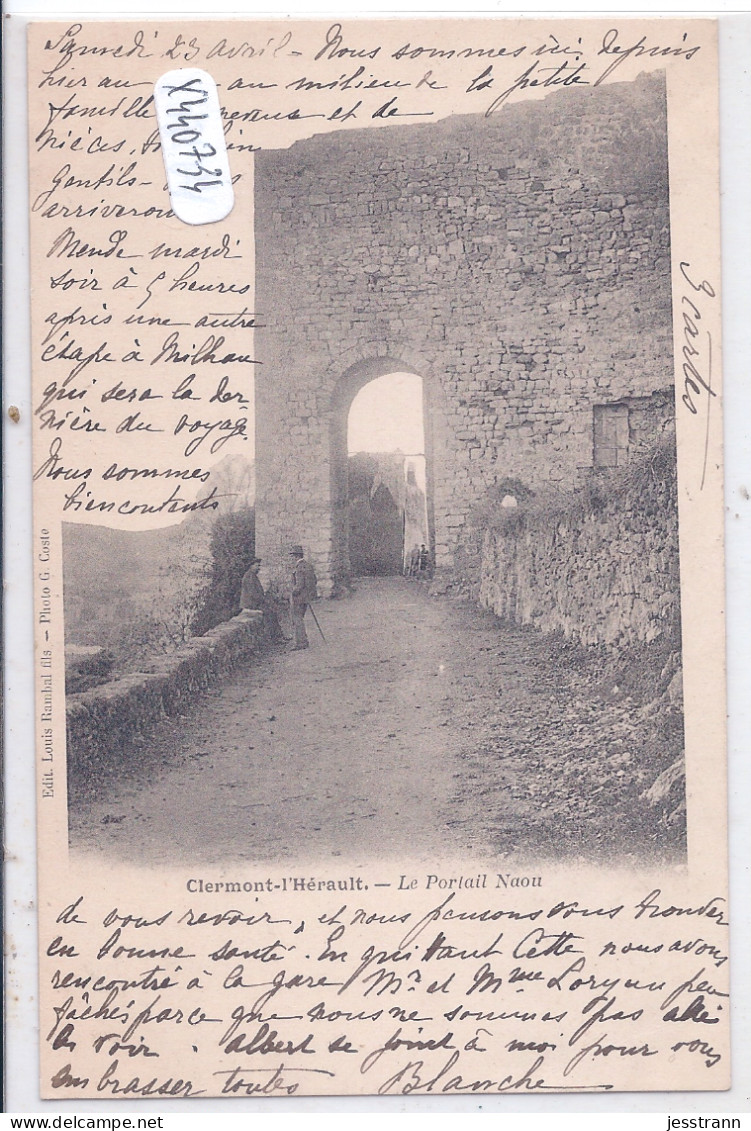 Samedi 23 avril - Nous sommes ici depuis
hier au au milieu de la petite
famille et de
nièces,
gentils -
arriverons
Mende mardi
soir à 5 heures
après une autre
étape à Milhau
qui sera la der
nière du voyage
Nous sommes
bien contants
3 cartes
X440734
Edit. Louis Rambal fils — Photo G. Coste
Clermont-l'Hérault. — Le Portail Naou
de vous revoir, et nous pensons vous trouver
en bonne santé. En quittant Cette nous avons
rencontré à la gare Mr. et Mme un peu
fâchés parce que nous ne sommes pas allé
les voir. Albert se joint à moi pour vous
embrasser toutes Blanche
jesstrann